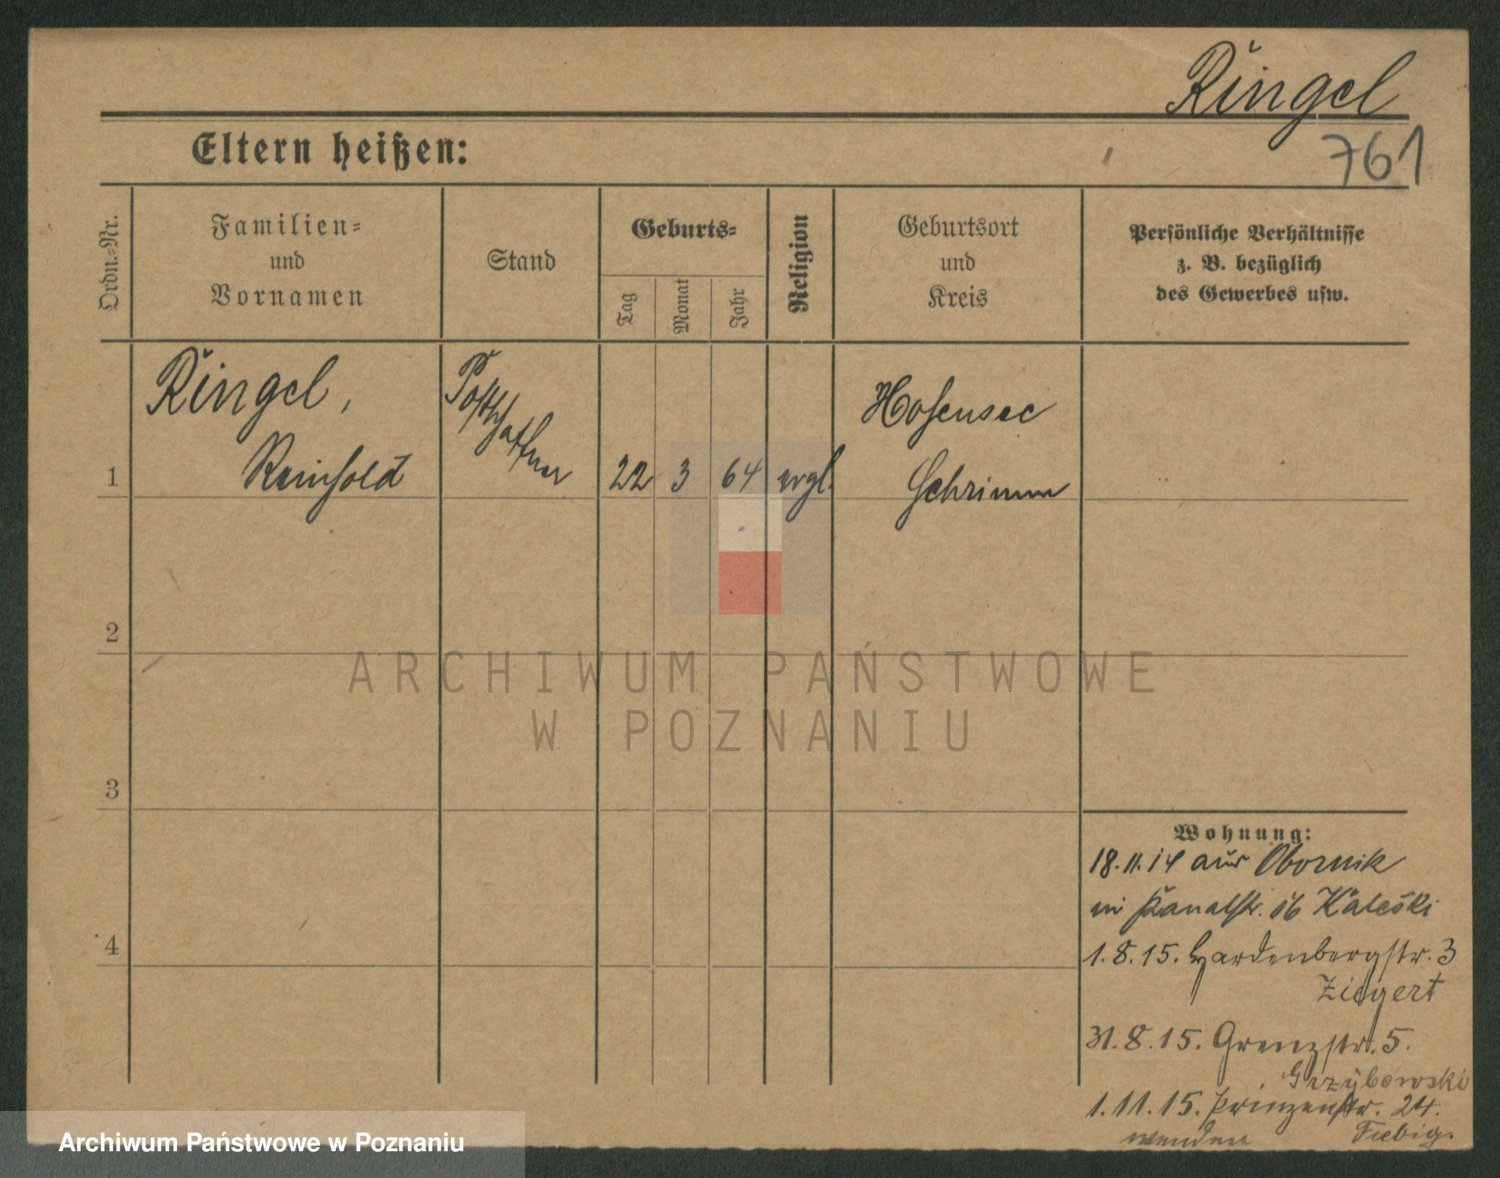 Ringel
761
Eltern heißen:
Ordn.-Nr.
Familien-
und
Vornamen
Stand
Geburts-
Tag
Monat
Jahr
Religion
Geburtsort
und
Kreis
Persönliche Verhältnisse
z. B. bezüglich
des Gewerbes usw.
1
Ringel,
Reinhold
Postschaffner
22
3
64
evgl.
Hohensee
Schrimm
2
3
4
ARCHIWUM PAŃSTWOWE
W POZNANIU
Wohnung:
18.11.14 aus Obornik
in Kanalstr. 16
1.8.15. Hardenbergstr. 3
Ziegert
31.8.15. Grenzstr. 5.
Grzybowski
1.11.15. Prinzenstr. 24.
wenden Fiebig.
Archiwum Państwowe w Poznaniu